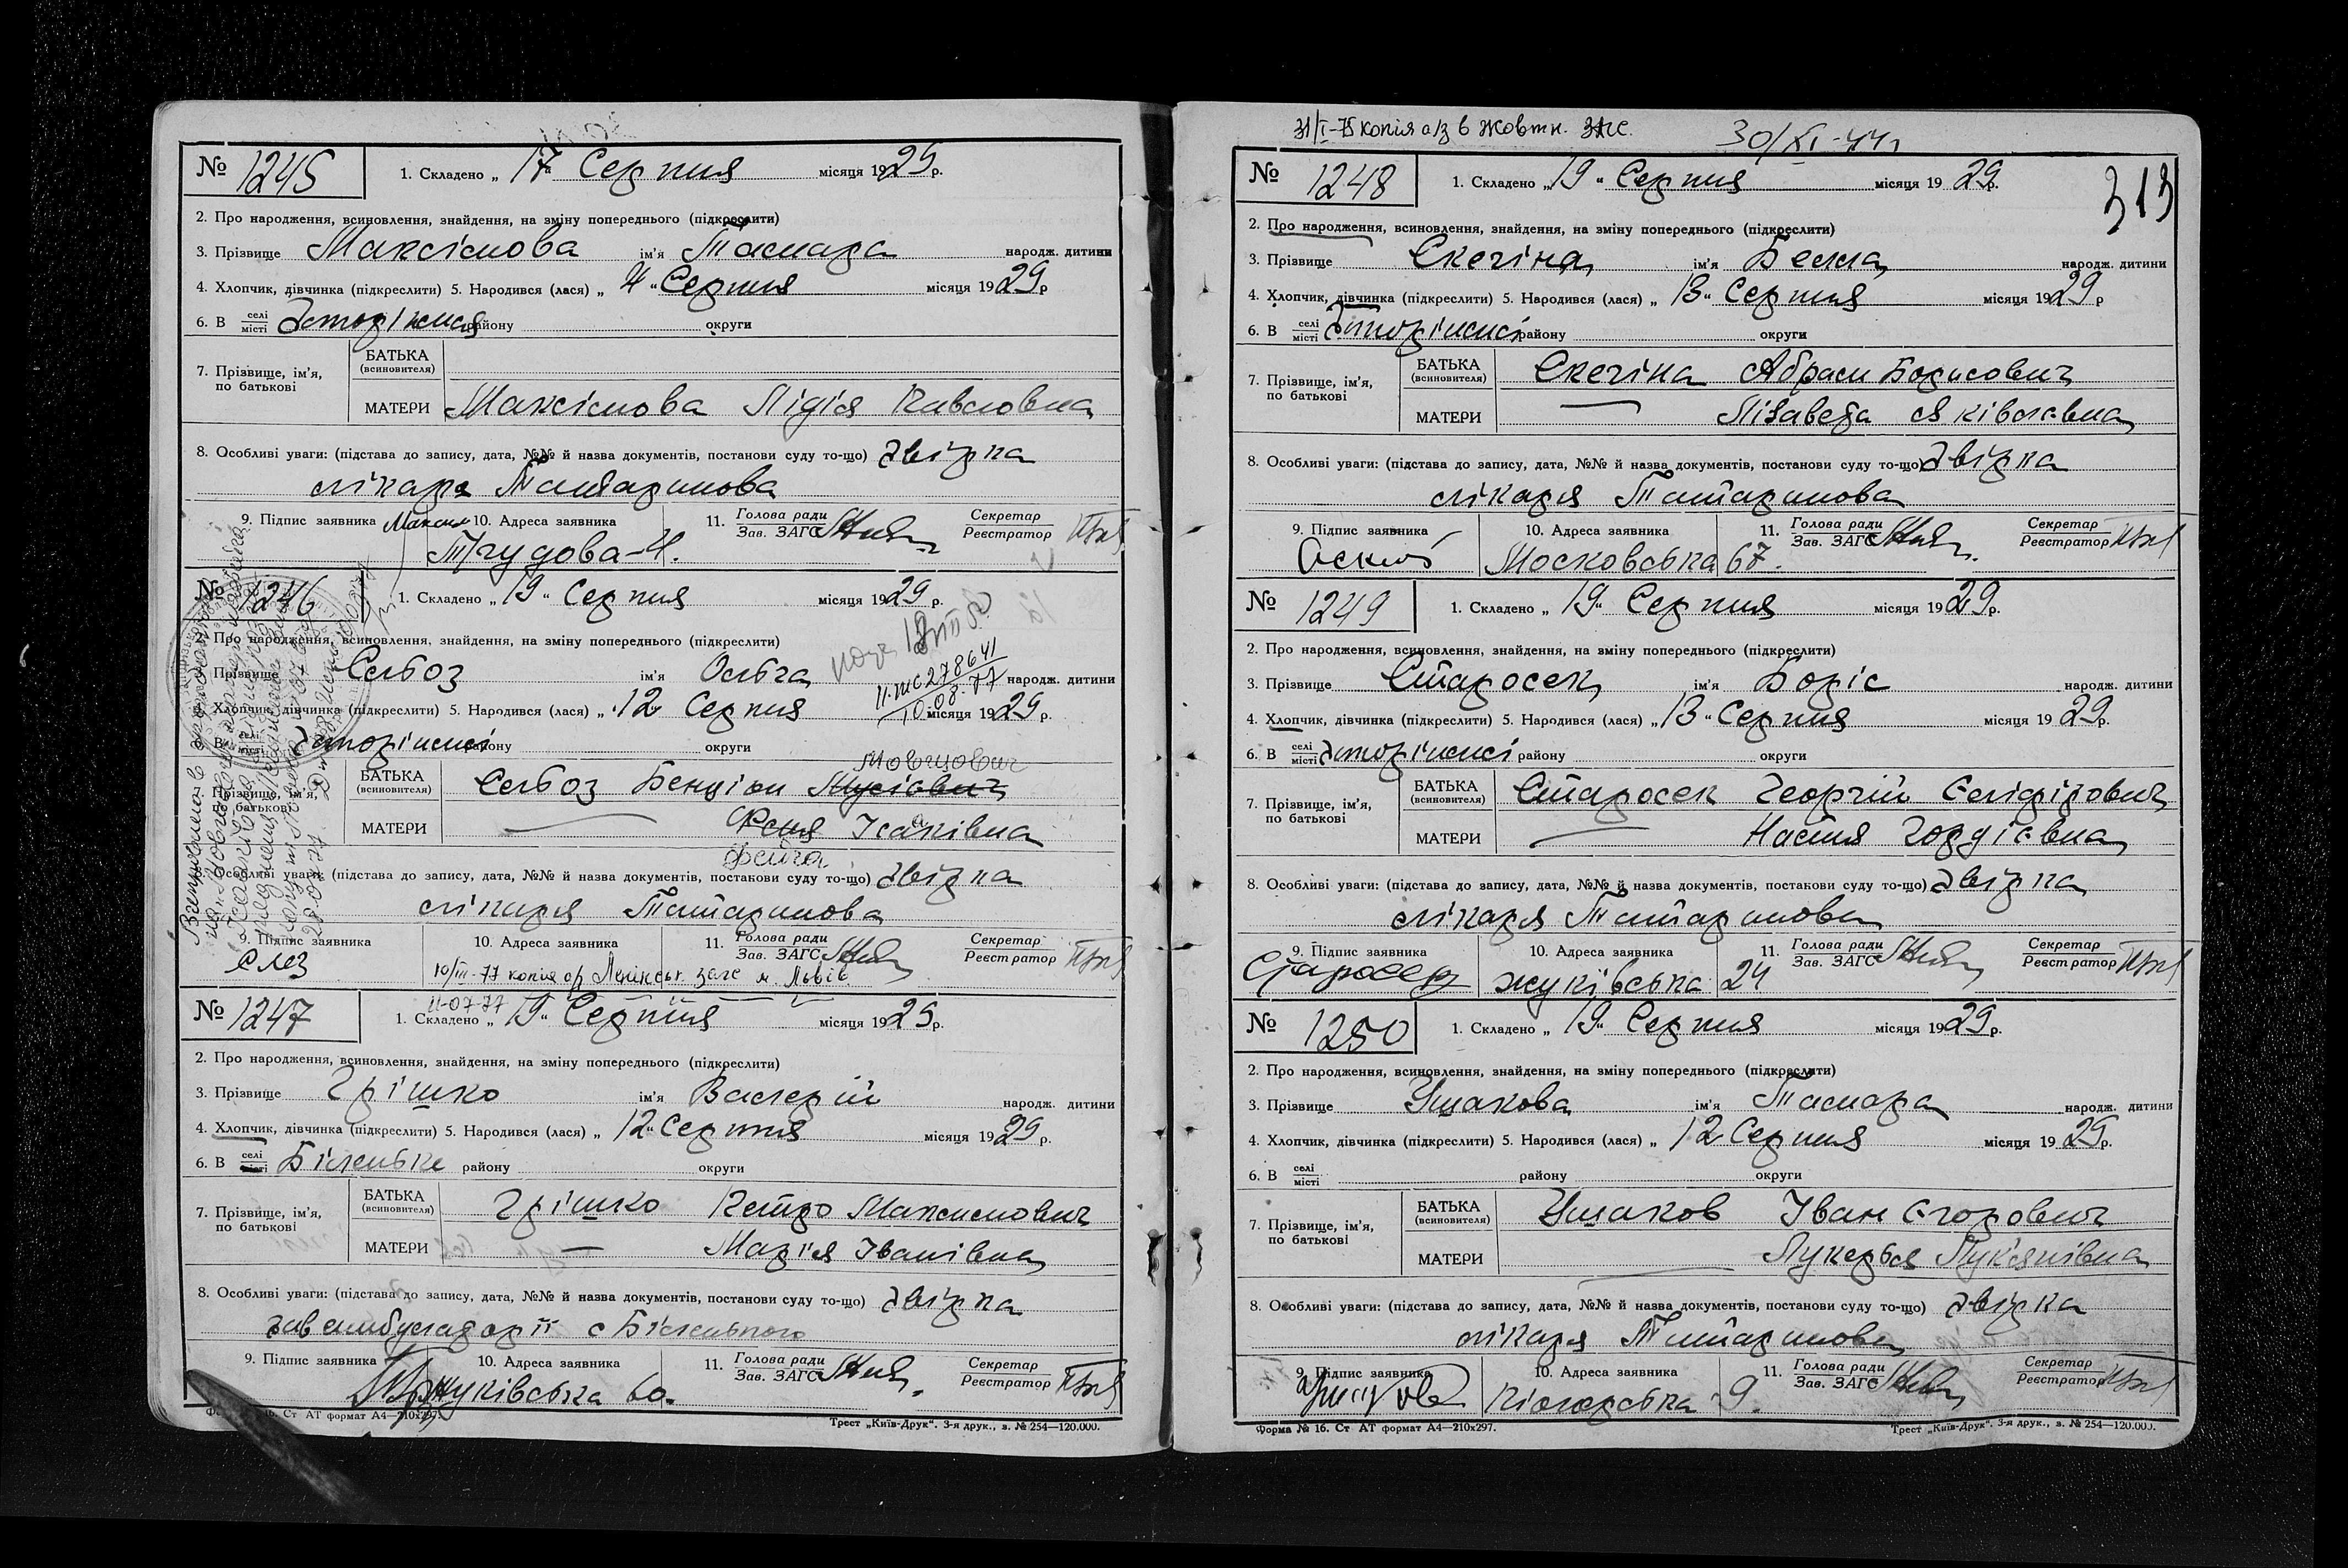 № 1245 1. Складено „ 17 “ Серпня місяця 1929 р.
2. Про народження, всиновлення, знайдення, на зміну попереднього (підкреслити)
3. Прізвище Максімова ім'я Тамара народж. дитини
4. Хлопчик, дівчинка (підкреслити) 5. Народився (лася) „ 4 “ Серпня місяця 1929 р
6. В селі місті Запоріжжя району округи
7. Прізвище, ім'я, по батькові БАТЬКА (всиновителя)
МАТЕРИ Максімова Лідія Павловна
8. Особливі уваги: (підстава до запису, дата, №№ й назва документів, постанови суду то-що) Звірка
лікаря Татарінова
9. Підпис заявника Максим 10. Адреса заявника 11. Голова ради Зав. ЗАГС Секретар Реєстратор
Трудова-4.
№ 1246 1. Складено „ 19 “ Серпня місяця 1929 р.
2. Про народження, всиновлення, знайдення, на зміну попереднього (підкреслити)
3. Прізвище Сльоз ім'я Ольга народж. дитини
II-ЖС 278641
10.08.77
4. Хлопчик, дівчинка (підкреслити) 5. Народився (лася) „ 12 Серпня місяця 1929 р.
6. В селі місті Запоріжжі району округи
Мовшович
7. Прізвище, ім'я, по батькові БАТЬКА (всиновителя) Сльоз Бенціон Мусієвич
МАТЕРИ — Феня Ісаківна
Фейга
8. Особливі уваги: (підстава до запису, дата, №№ й назва документів, постанови суду то-що) Звірка
лікаря Татарінова
9. Підпис заявника Слез 10. Адреса заявника 11. Голова ради Зав. ЗАГС Секретар Реєстратор
10/III-77 копія о/р Ленінськ. загс м. Львів
11-07-77
№ 1247 1. Складено „ 19 “ Серпня місяця 1929 р.
2. Про народження, всиновлення, знайдення, на зміну попереднього (підкреслити)
3. Прізвище Грішко ім'я Валерій народж. дитини
4. Хлопчик, дівчинка (підкреслити) 5. Народився (лася) „ 12 “ Серпня місяця 1929 р.
6. В селі місті Біленьке району округи
7. Прізвище, ім'я, по батькові БАТЬКА (всиновителя) Грішко Петро Максимович
МАТЕРИ — Марія Іванівна
8. Особливі уваги: (підстава до запису, дата, №№ й назва документів, постанови суду то-що) Звірка
зав амбулаторії с Біленького
9. Підпис заявника 10. Адреса заявника 11. Голова ради Зав. ЗАГС Секретар Реєстратор
Жуківська 60.
Форма № 16. Ст АТ формат А4—210х297. Трест „Київ-Друк“. 3-я друк., з. № 254—120.000.
31/I-75 копія а/з в Жовтн. ЗАГС. 30/XI-44 г
313
№ 1248 1. Складено „ 19 “ Серпня місяця 1929 р.
2. Про народження, всиновлення, знайдення, на зміну попереднього (підкреслити)
3. Прізвище Скегіна ім'я Белла народж. дитини
4. Хлопчик, дівчинка (підкреслити) 5. Народився (лася) „ 13 “ Серпня місяця 1929 р
6. В селі місті Запоріжжі району округи
7. Прізвище, ім'я, по батькові БАТЬКА (всиновителя) Скегіна Абрам Борисович
МАТЕРИ — Лізавета Яківлівна
8. Особливі уваги: (підстава до запису, дата, №№ й назва документів, постанови суду то-що) Звірка
лікаря Татарінова
9. Підпис заявника 10. Адреса заявника 11. Голова ради Зав. ЗАГС Секретар Реєстратор
Московська 67.
№ 1249 1. Складено „ 19 “ Серпня місяця 1929 р.
2. Про народження, всиновлення, знайдення, на зміну попереднього (підкреслити)
3. Прізвище Старосек ім'я Боріс народж. дитини
4. Хлопчик, дівчинка (підкреслити) 5. Народився (лася) „ 13 “ Серпня місяця 1929 р.
6. В селі місті Запоріжжі району округи
7. Прізвище, ім'я, по батькові БАТЬКА (всиновителя) Старосек Георгій Селіфірович
МАТЕРИ — Настя Гордієвна
8. Особливі уваги: (підстава до запису, дата, №№ й назва документів, постанови суду то-що) Звірка
лікаря Татарінова
9. Підпис заявника Старосек 10. Адреса заявника 11. Голова ради Зав. ЗАГС Секретар Реєстратор
Жуківська 24
№ 1250 1. Складено „ 19 “ Серпня місяця 1929 р.
2. Про народження, всиновлення, знайдення, на зміну попереднього (підкреслити)
3. Прізвище Ушакова ім'я Тамара народж. дитини
4. Хлопчик, дівчинка (підкреслити) 5. Народився (лася) „ 12 Серпня місяця 1929 р.
6. В селі місті району округи
7. Прізвище, ім'я, по батькові БАТЬКА (всиновителя) Ушаков Іван Єгорович
МАТЕРИ — Лукерья Лук'янівна
8. Особливі уваги: (підстава до запису, дата, №№ й назва документів, постанови суду то-що) Звірка
лікаря Татарінова
9. Підпис заявника 10. Адреса заявника 11. Голова ради Зав. ЗАГС Секретар Реєстратор
9.
Форма № 16. Ст АТ формат А4—210х297. Трест „Київ-Друк“. 3-я друк., з. № 254—120.000.